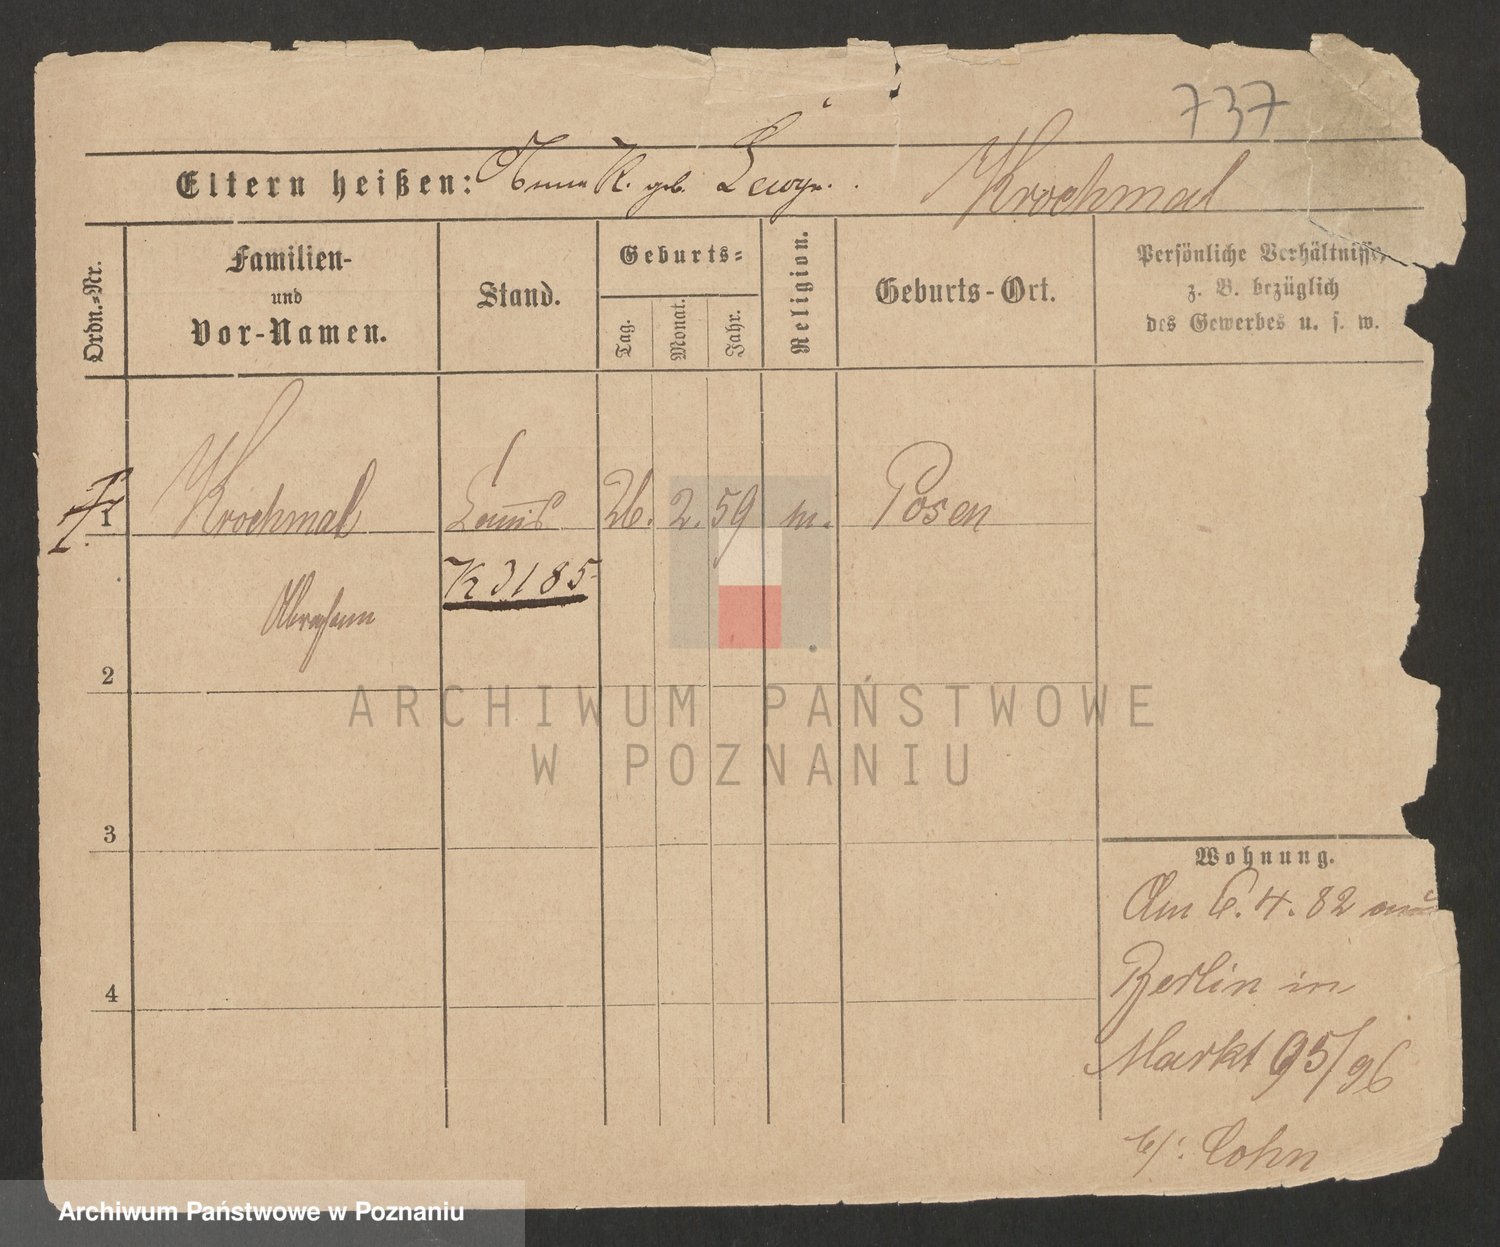 737
Eltern heißen: K. geb. Krochmal
Ordn.-Nr.
Familien-
und
Vor-Namen.
Stand.
Geburts-
Tag.
Monat.
Jahr.
Religion.
Geburts-Ort.
Persönliche Verhältnisse,
z. B. bezüglich
des Gewerbes u. s. w.
1 Krochmal 26. 2. 59 m. Posen
K 3185
Abraham
2
ARCHIWUM PAŃSTWOWE
W POZNANIU
3
Wohnung.
Am 6. 4. 82 aus
4
Berlin in
Markt 95/96
b/: Cohn
Archiwum Państwowe w Poznaniu